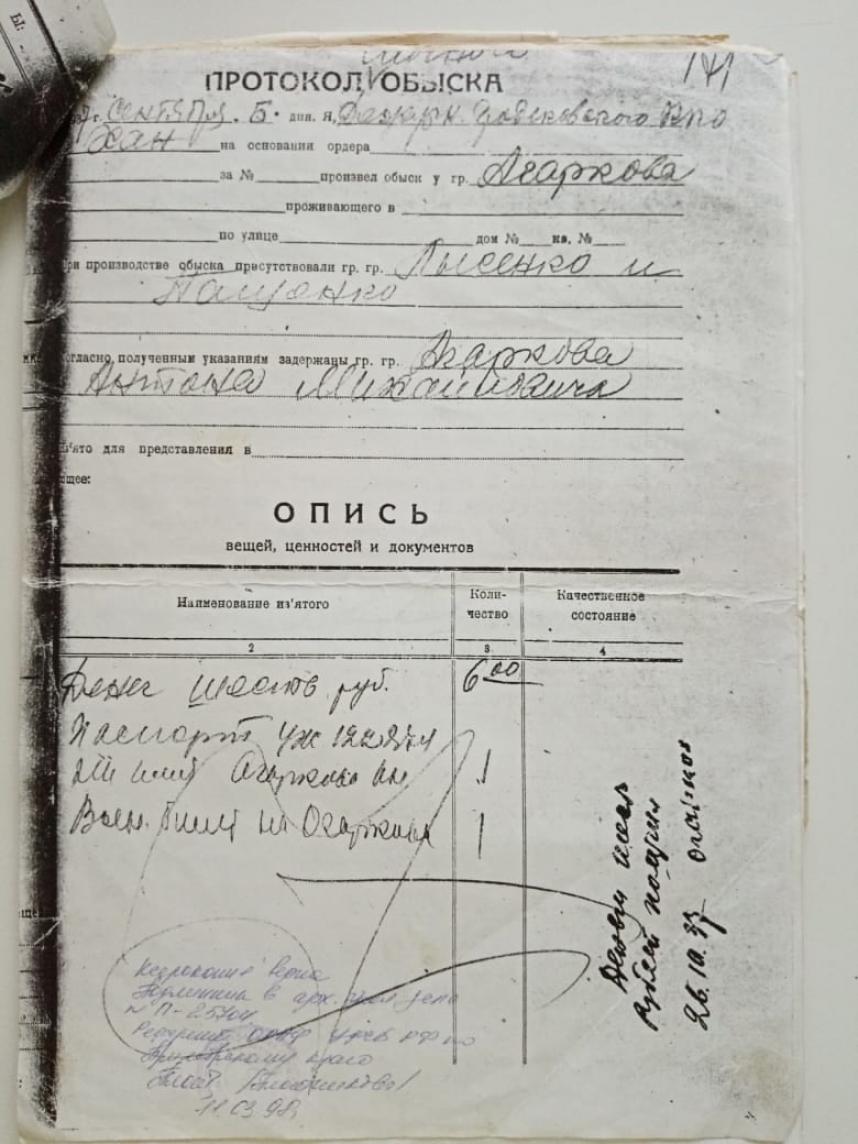 личной
ПРОТОКОЛ ОБЫСКА
141
г. сентяпля. 5. дня. Я, Дежурн. Гродековского РПО
Хан на основании ордера
за № произвел обыск у гр. Агаркова
проживающего в
по улице дом № кв. №
при производстве обыска присутствовали гр. гр. Лысенко и
Пащенко
согласно, полученным указаниям задержаны гр. гр. Агаркова
Антона Михайловича
из'ято для представления в
ющее:
ОПИСЬ
вещей, ценностей и документов
Наименование из'ятого
Коли-
чество
Качественное
состояние
2 3 4
Денег шесть руб. 6 00
Паспорт УЖ
Огаркова 1
Воен. билет на Огаркова 1
Деньги шесть
рублей получил
26.10.37
Ксерокопия верна
Подлинник в арх. след. деле
N П-25704
УФСБ РФ по
Приморскому краю
11.03.98